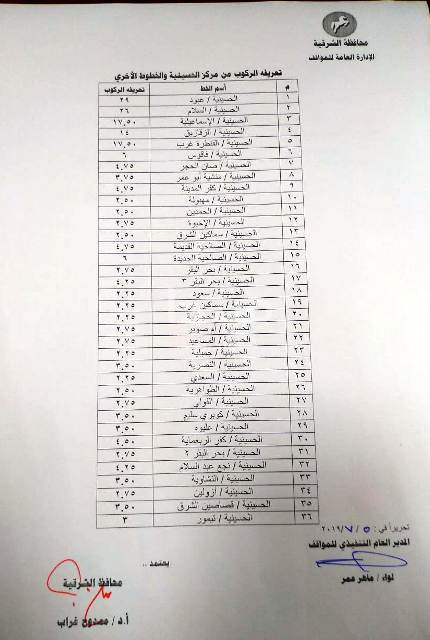 محافظة الشرقية
الإدارة العامة للمواقف
تعريفه الركوب من مركز الحسينية والخطوط الأخري
# أسم الخط تعريفه الركوب
١ الحسينية / عبود ٢٩
٢ الحسينية / السلام ٢٦
٣ الحسينية / الإسماعيلية ١٧,٥٠
٤ الحسينية / الزقازيق ١٤
٥ الحسينية / القنطرة غرب ١٧,٥٠
٦ الحسينية / فاقوس ٦
٧ الحسينية / صان الحجر ٤,٧٥
٨ الحسينية / منشية أبو عمر ٣,٧٥
٩ الحسينية / كفر المدينة ٤,٧٥
١٠ الحسينية / سهبولة ٢,٥٠
١١ الحسينية / الحمدين ٢,٥٠
١٢ الحسينية / الإخيوة ٢,٧٥
١٣ الحسينية / سماكين الشرق ٢,٥٠
١٤ الحسينية / الصالحية القديمة ٤,٧٥
١٥ الحسينية / الصالحية الجديدة ٦
١٦ الحسينية / بحر البقر ٢,٧٥
١٧ الحسينية / بحر البقر ٣ ٤,٢٥
١٨ الحسينية / سعود ٢,٢٥
١٩ الحسينية / سماكين غرب ٢,٢٥
٢٠ الحسينية / الحجازية ٢,٢٥
٢١ الحسينية / أم صوير ٢,٧٥
٢٢ الحسينية / المساعيد ٢,٧٥
٢٣ الحسينية / جميلية ٢,٢٥
٢٤ الحسينية / النصرية ٣,٥٠
٢٥ الحسينية / السعدي ٢,٢٥
٢٦ الحسينية / الظواهرية ٢,٥٠
٢٧ الحسينية / اللواي ٢,٧٥
٢٨ الحسينية / كوبري سليم ٣,٥٠
٢٩ الحسينية / عليوه ٣,٥٠
٣٠ الحسينية / كفر الربعماية ٤,٥٠
٣١ الحسينية / بحر البقر ٢ ٢,٧٥
٣٢ الحسينية / نجع عبد السلام ٤,٢٥
٣٣ الحسينية / الشاوية ٣,٥٠
٣٤ الحسينية / أزولين ٢,٧٥
٣٥ الحسينية / قصاصين الشرق ٣,٥٠
٣٦ الحسينية / تيمور ٣
تحريراً في : ٥ / ٧ / ٢٠١٩
المدير العام التنفيذي للمواقف
لواء / ماهر عمر
يعتمد ..
محافظ الشرقية
أ.د / ممدوح غراب